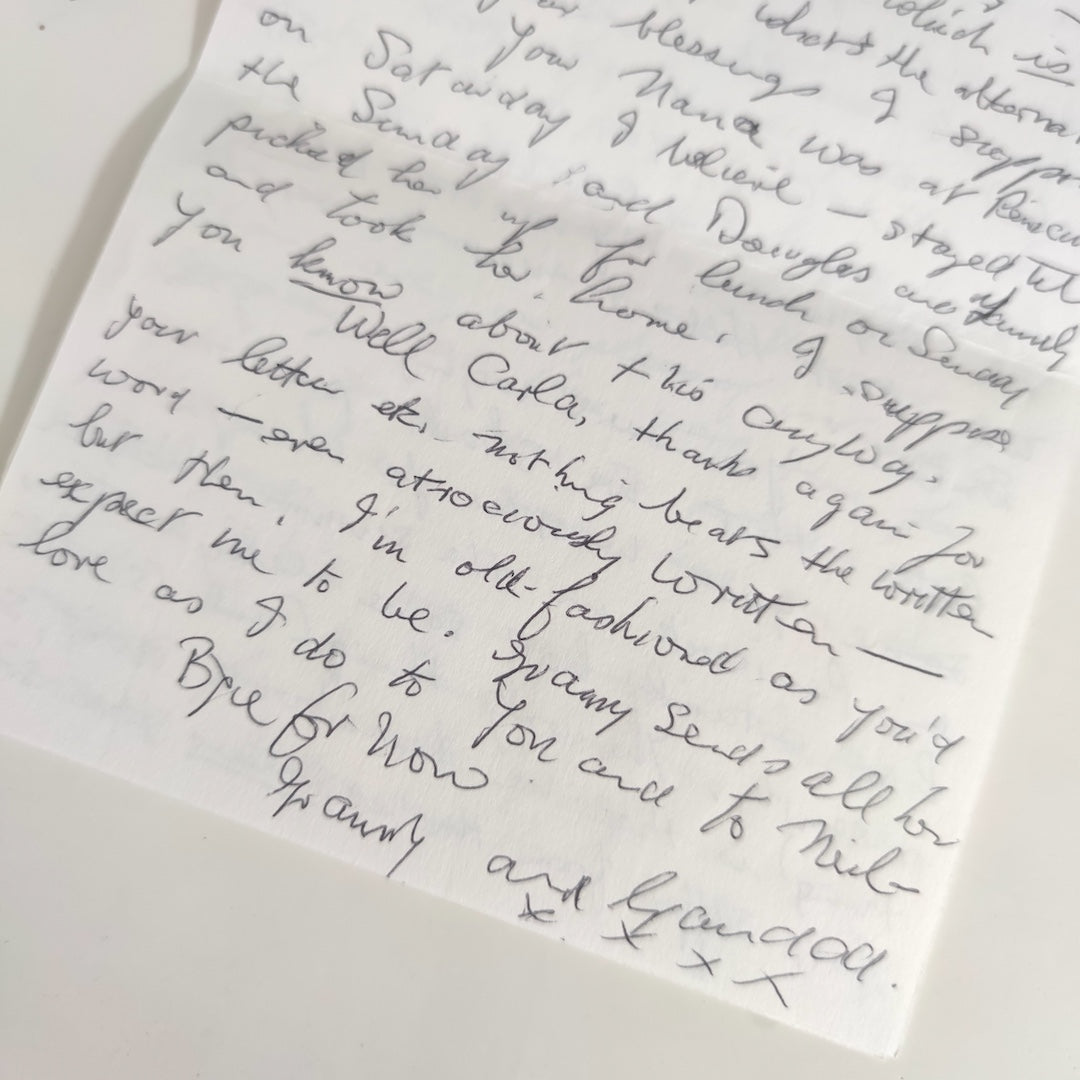 which is
what's the alterna
blessings I suppo
on your Nana was at
on Saturday I believe — stayed til
the Sunday and Douglas and family
picked her up for lunch on Sunday
and took her home. I suppose
you know about this anyway.
Well Carla, thanks again for
your letter etc. nothing beats the written
word — even atrociously written —
but then, I'm old-fashioned as you'd
expect me to be. Granny sends all her
love as I do to you and to Neil
Bye for now
Granny and Grandad.
x x x x